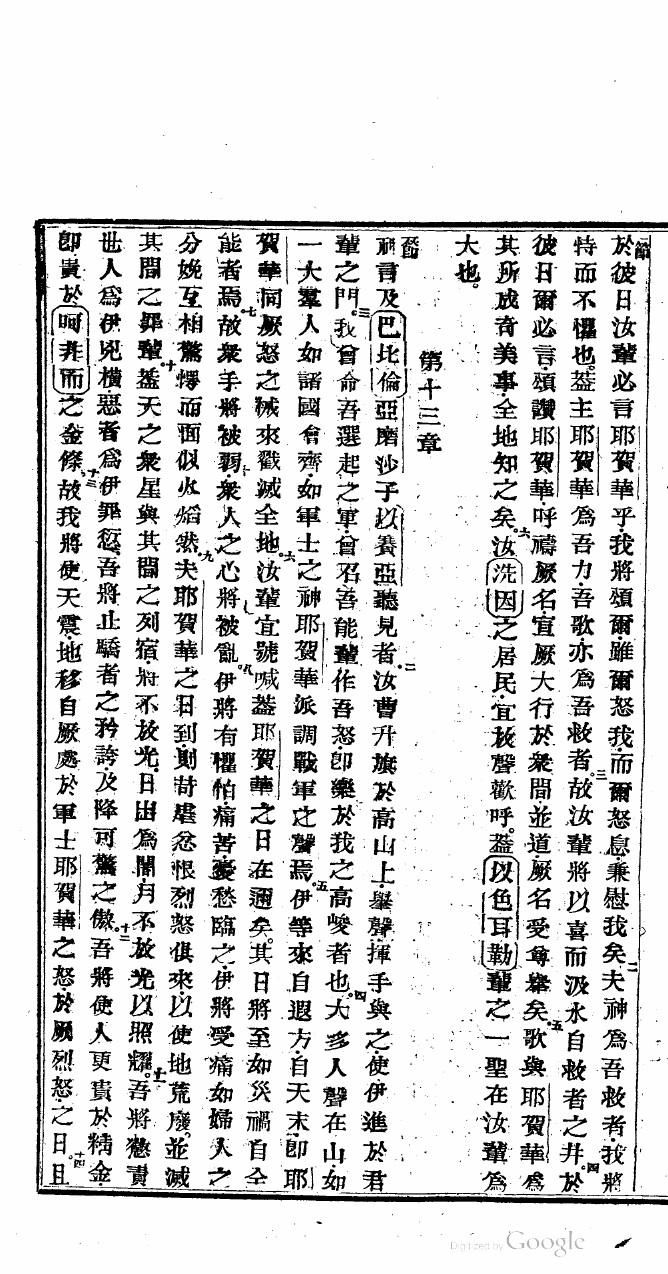 於彼日汝輩必言耶賀華乎我將頌爾雖爾怒我而爾怒息兼慰我矣二夫神爲吾救者我將
特而不懼也蓋主耶賀華爲吾力吾歌亦爲吾救者三故汝輩將以喜而汲水自救者之井四於
彼日爾必言頌讚耶賀華呼禱厥名宣厥大行於衆間並道厥名受尊舉矣五歌與耶賀華爲
其所成奇美事全地知之矣六汝洗因之居民宜放聲歡呼蓋以色耳勒輩之一聖在汝輩爲
大也
第十三章
禍言及巴比倫亞磨沙子以賽亞聽見者二汝曹升旗於高山上舉聲揮手與之使伊進於君
輩之門三我曾命吾選起之軍曾召吾能輩作吾怒卽樂於我之高峻者也四大多人聲在山如
一大羣人如諸國會齊如軍士之神耶賀華派調戰軍之聲焉五伊等來自遐方自天末卽耶
賀華同厥怒之械來戳滅全地六汝輩宜號喊蓋耶賀華之日在邇矣其日將至如災禍自全
能者焉七故衆手將被弱衆人之心將被亂八伊將有懼怕痛苦憂愁臨之伊將受痛如婦人之
分娩互相驚愕而面似火焰然九夫耶賀華之日到則苛虐忿恨烈怒俱來以使地荒廢並滅
其間之罪輩十蓋天之衆星與其間之列宿將不放光日出爲闇月不放光以照耀十一吾將懲責
世人爲伊兇橫惡者爲伊罪愆吾將止驕者之矜誇及降可驚之傲十二吾將使人更貴於精金
卽貴於呵非而之金條十三故我將使天震地移自厥處於軍士耶賀華之怒於厥烈怒之日十四且
Digitized by Google